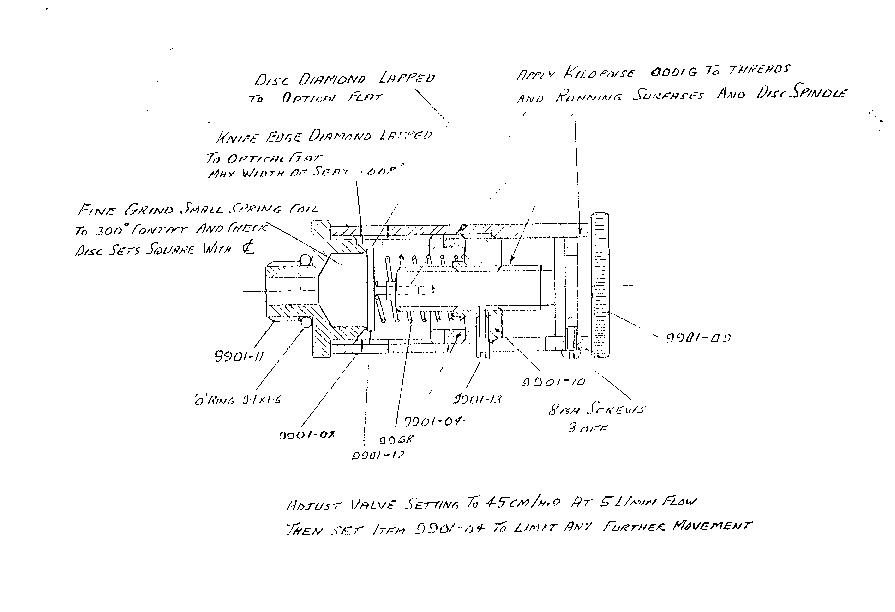 DISC DIAMOND LAPPED
TO OPTICAL FLAT
APPLY KILOPOISE 0001G TO THREADS
AND RUNNING SURFASES AND DISC SPINDLE
KNIFE EDGE DIAMOND LAPPED
TO OPTICAL FLAT
MAX WIDTH OF SEAT
FINE GRIND SMALL SPRING COIL
TO 300° CONTACT AND CHECK
DISC SETS SQUARE WITH ℄
9901-11
'O' RING 9·1x1·6
9901-08
9901-12
9968
9901-04
9901-13
9901-10
8BA SCREWS
3 OFF
ADJUST VALVE SETTING TO 45CM/H2O AT 5L/MIN FLOW
THEN SET ITEM 9901-04 TO LIMIT ANY FURTHER MOVEMENT